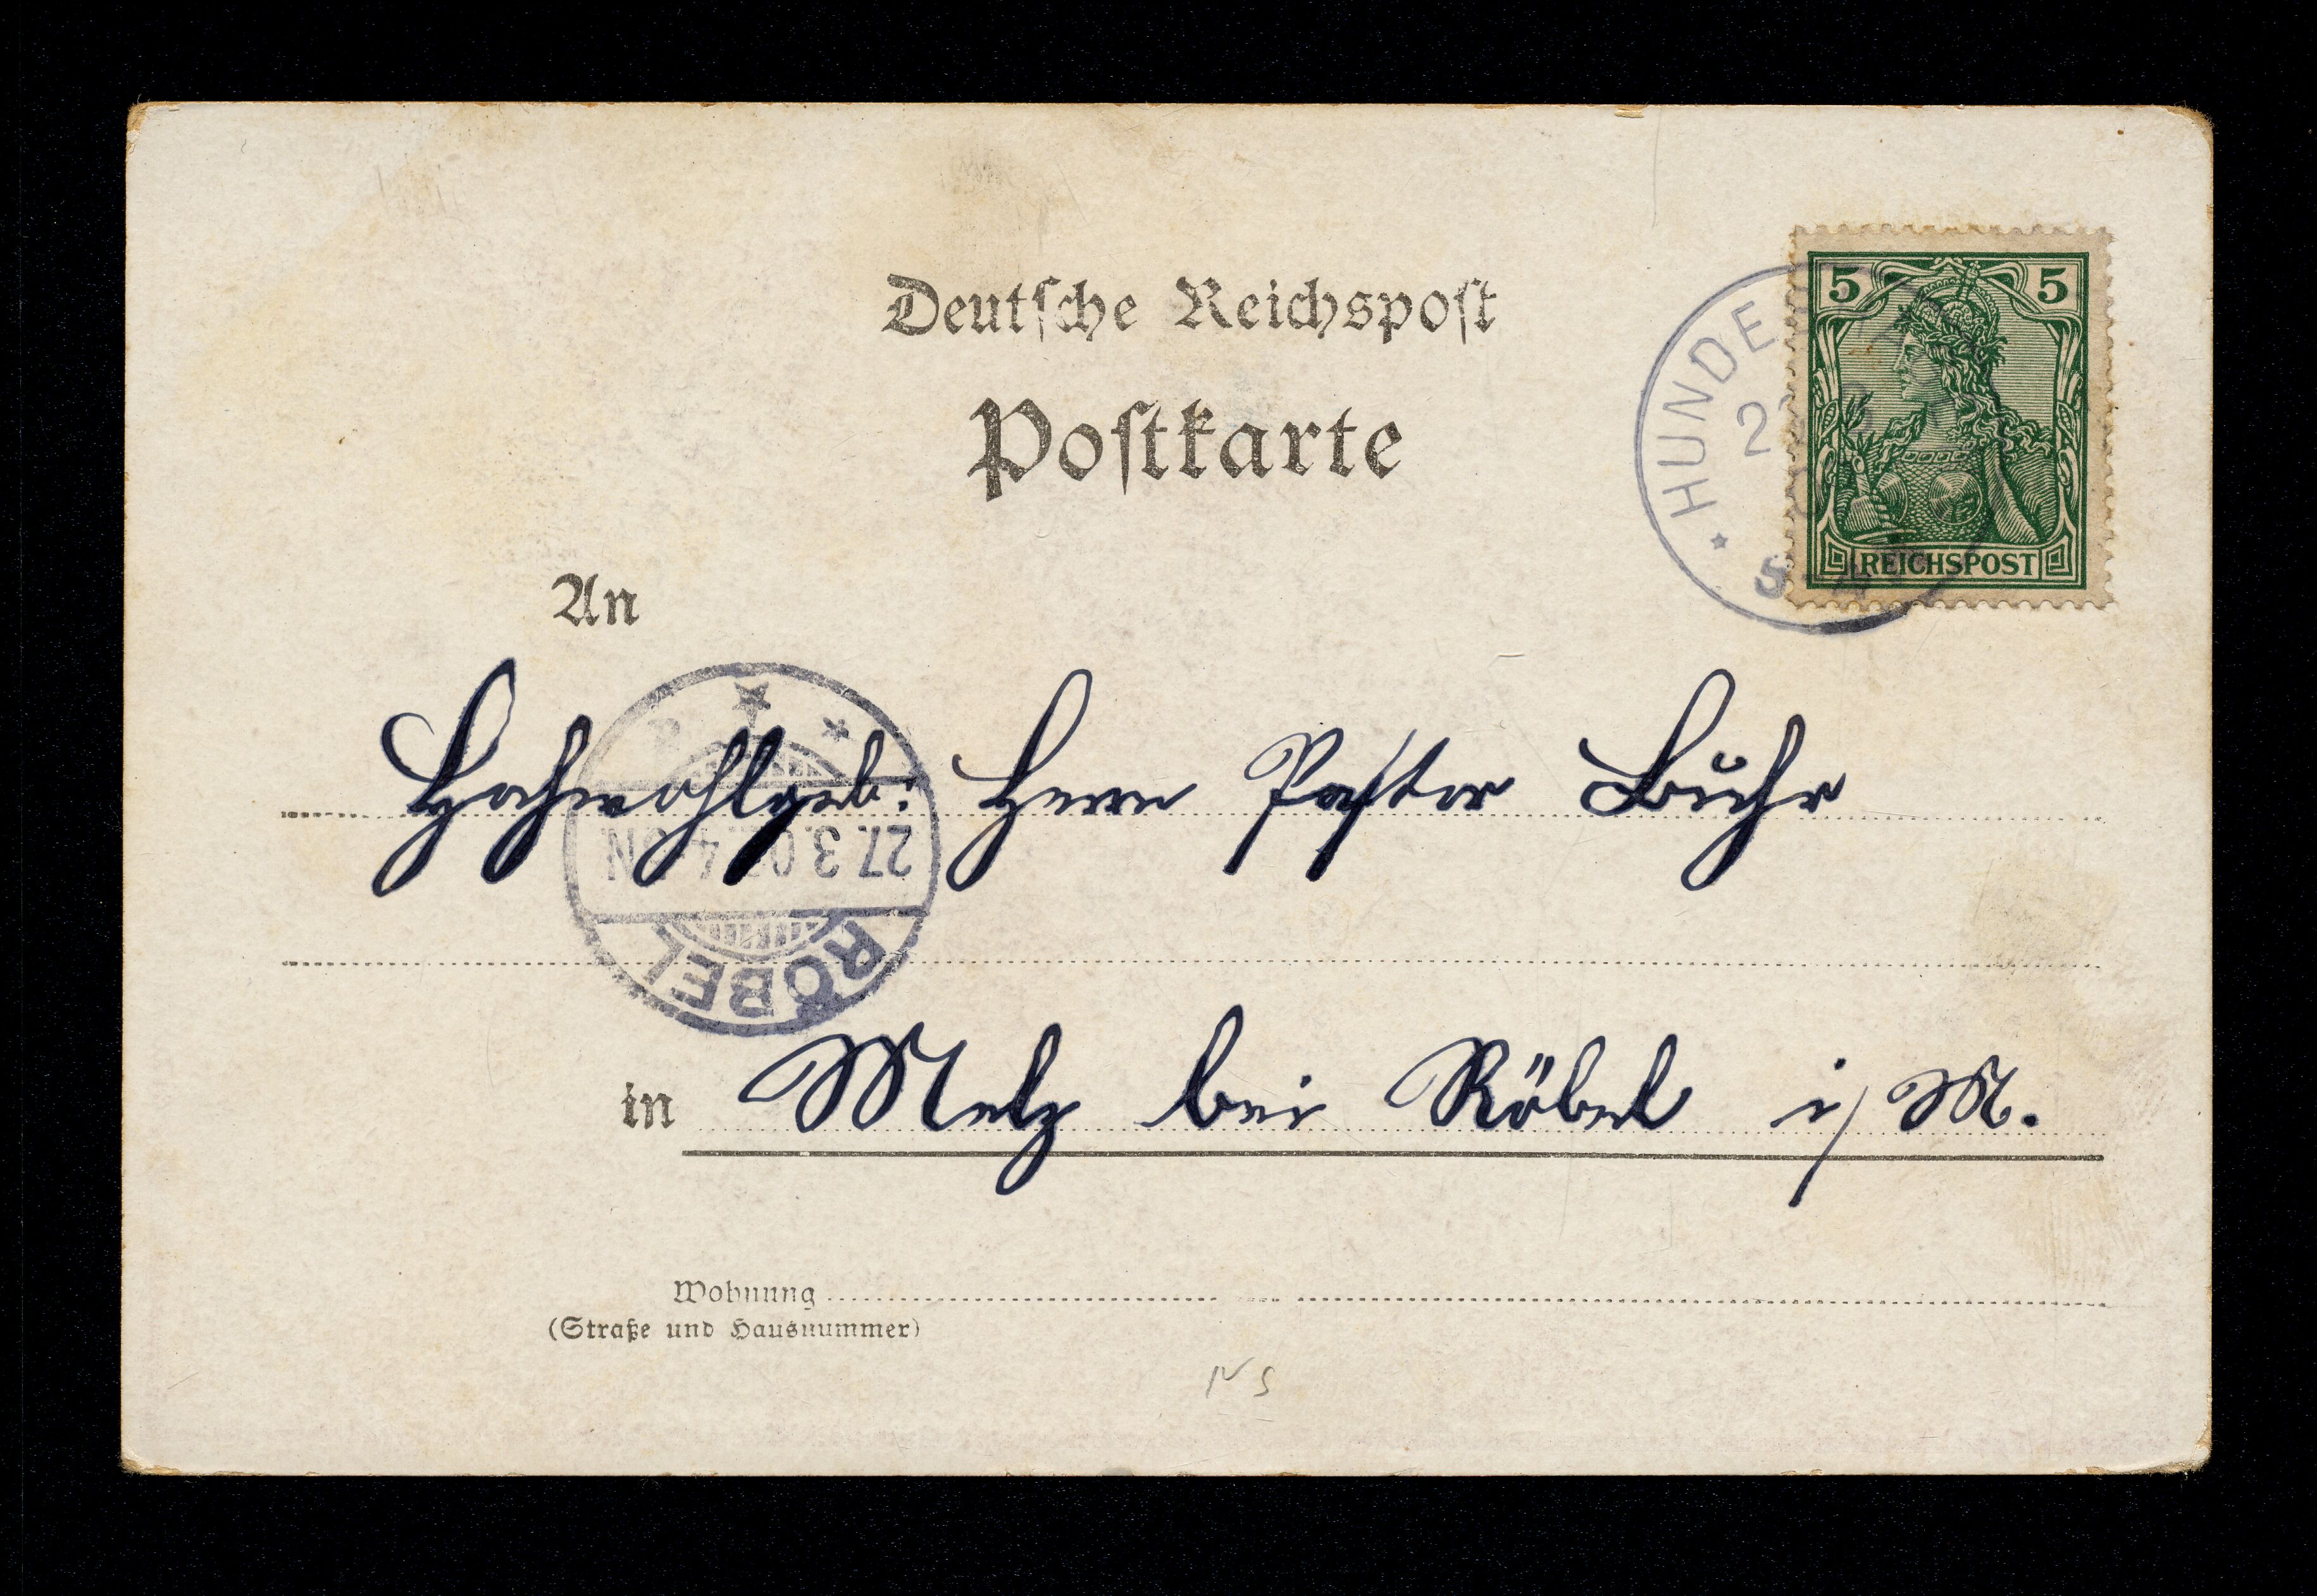 Deutsche Reichspost
Postkarte
5 5
REICHSPOST
HUNDE
An
Hochwohlgeb: Herrn Pastor Buhr
27.3.0 4- N
RÖBEL
in Melz bei Röbel i/M.
Wohnung
(Straße und Hausnummer)